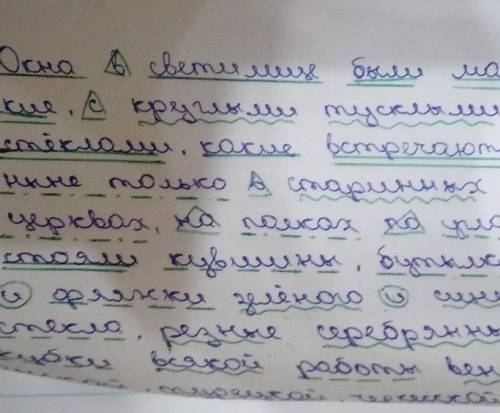 Окна в светимице были ма
кие, с круглыми тусклыми
стёклами, какие встречают
ныне только в старинных
церквах, на полках по угла
стояли кувшины, бутылк
и фляжки зелёного и син
стекла, резные серебрянны
кубки всякой работы вен